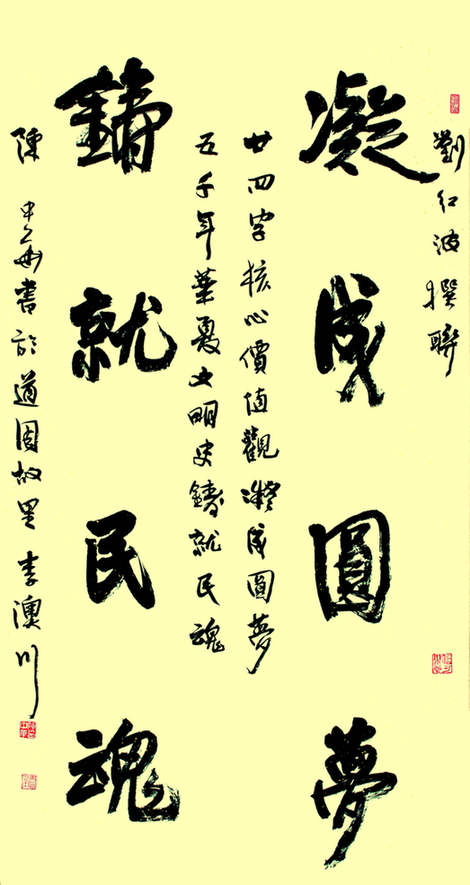 劉红波撰聯
凝成圓夢
廿四字核心價值觀凝成圓夢
五千年華夏文明史鑄就民魂
鑄就民魂
陳中華書於道周故里李澳川